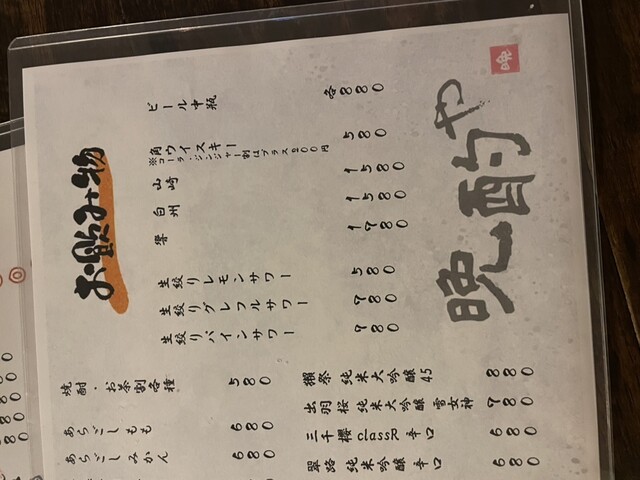 お飲み物
晩酌や
ビール中瓶 各880
角ウイスキー 580
※コーラ・ジンジャー割はプラス200円
山崎 1580
白州 1580
響 1780
生絞りレモンサワー 580
生絞りグレフルサワー 780
生絞りパインサワー 780
焼酎・お茶割各種 580
あらごしもも 680
あらごしみかん 680
獺祭 純米大吟醸45 880
出羽桜 純米大吟醸 雪女神 780
三千櫻 classR 辛口 680
翠路 純米吟醸 辛口 680